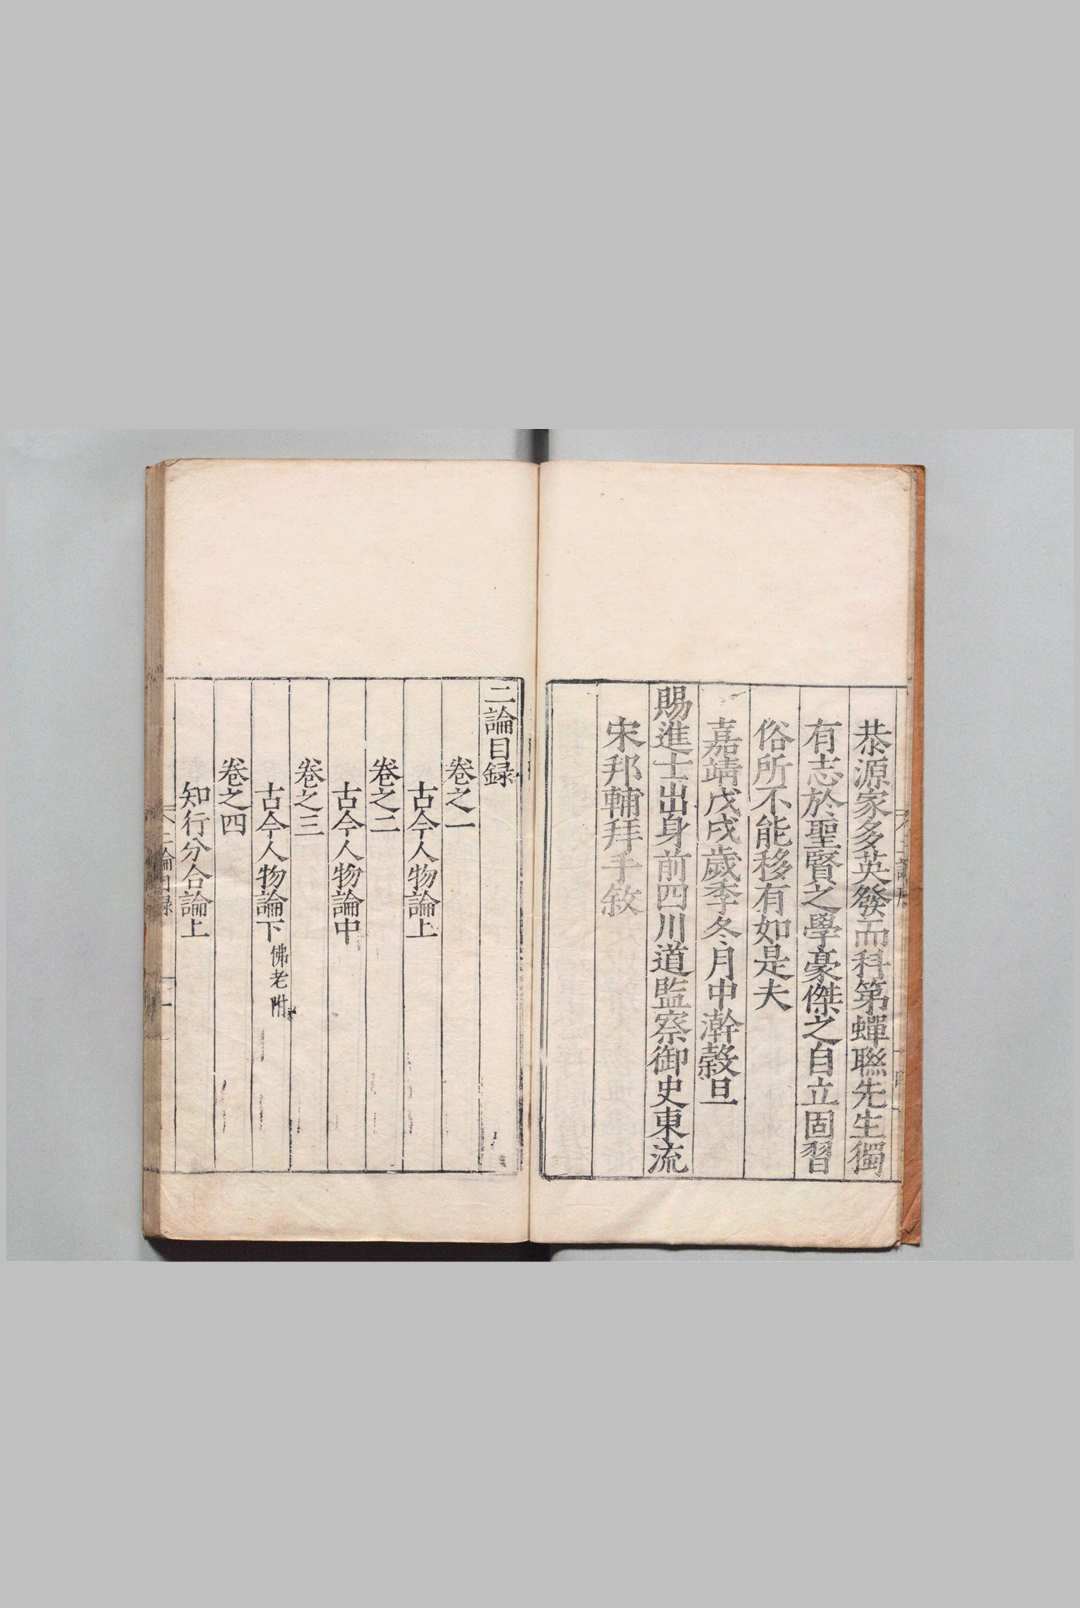 恭源家多英發而科第蟬聯先生獨
有志於聖賢之學豪傑之自立固習
俗所不能移有如是夫
嘉靖戊戌歲季冬月中澣穀旦
賜進士出身前四川道監察御史東流
宋邦輔拜手敘
二論目録
卷之一
古今人物論上
卷之二
古今人物論中
卷之三
古今人物論下佛老附
卷之四
知行分合論上